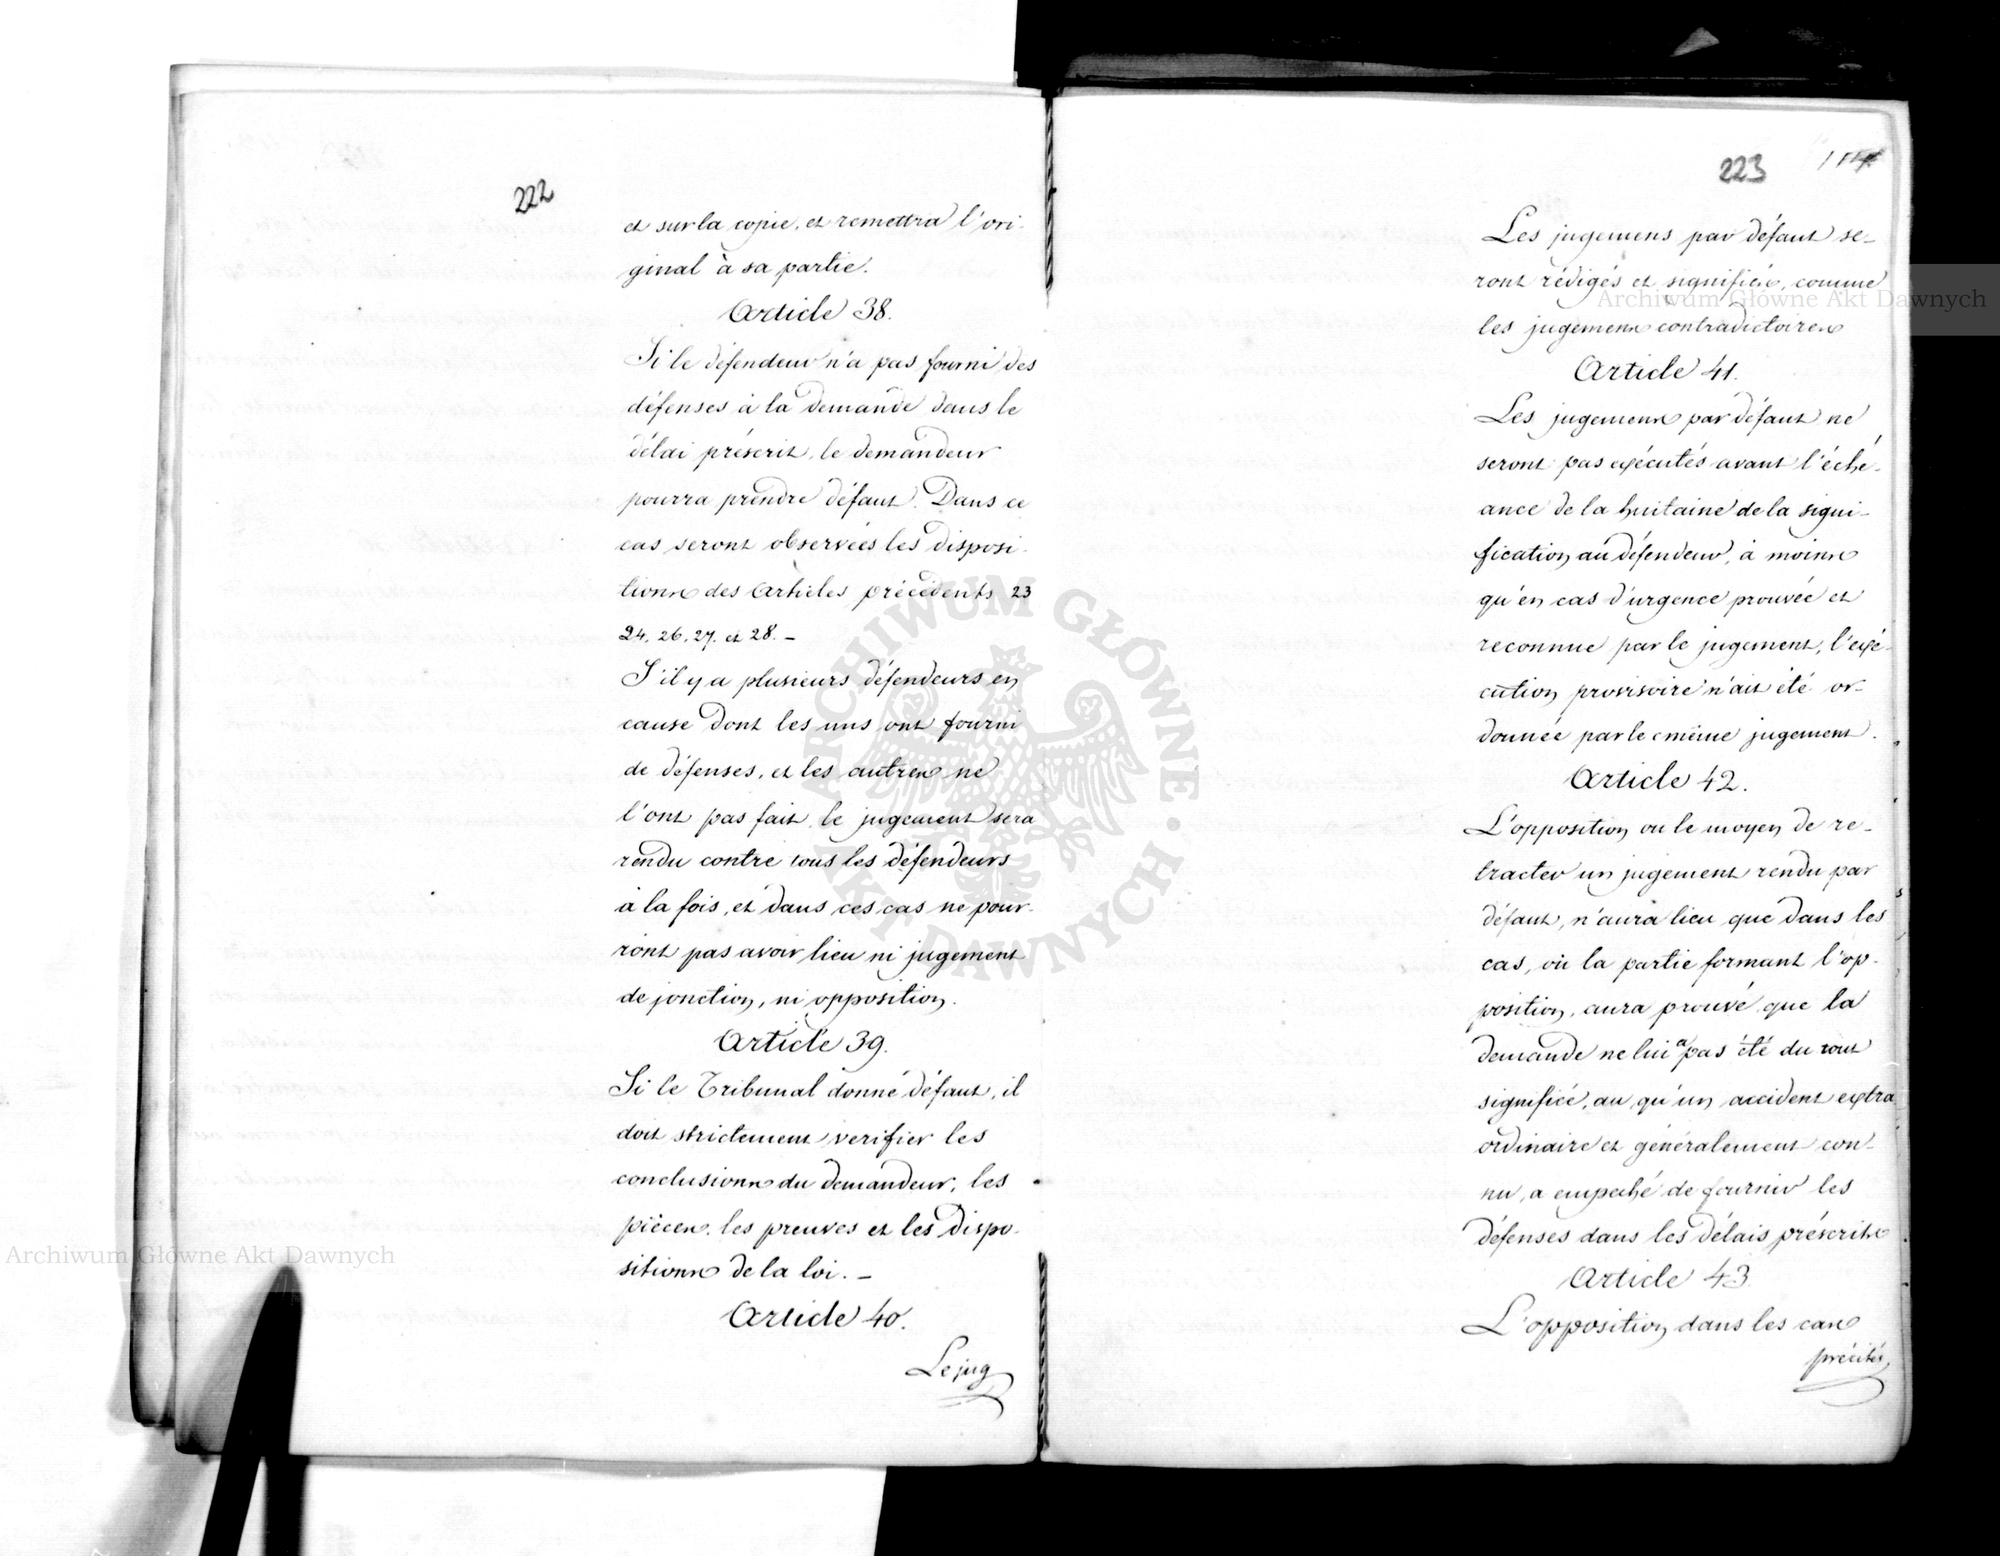 222
et sur la copie, et remettra l'ori-
ginal à sa partie.
Article 38.
Si le défendeur n'a pas fourni des
défenses à la demande dans le
délai préscrit, le demandeur
pourra prendre défaut. Dans ce
cas seront observées les disposi-
tions des Articles précédents 23
24, 26, 27, et 28. –
S'il y a plusieurs défendeurs en
cause dont les uns ont fourni
de défenses, et les autres ne
l'ont pas fait, le jugement sera
rendu contre tous les défendeurs
à la fois, et dans ces cas ne pour-
ront pas avoir lieu ni jugement
de jonction, ni opposition.
Article 39.
Si le Tribunal donne défaut, il
doit strictement verifier les
conclusions du demandeur, les
pièces, les preuves et les dispo-
sitions de la loi. –
Article 40.
Le jug
223
Les jugemens par défaut se-
ront rédigés et signifiés, comme
les jugemens contradictoires
Article 41.
Les jugemens par défaut ne
seront pas exécutés avant l'éché-
ance de la huitaine de la signi-
fication au défendeur, à moins
qu'en cas d'urgence prouvée et
reconnue par le jugement, l'exé-
cution provisoire n'ait été or-
donnée par le même jugement.
Article 42.
L'opposition ou le moyen de re-
tracter un jugement rendu par
défaut, n'aura lieu que dans les
cas, où la partie formant l'op-
position, aura prouvé que la
demande ne lui a pas été du tout
signifiée, au qu'un accident extra
ordinaire et généralement con-
nu, a empeché de fournir les
défenses dans les délais préscrits
Article 43.
L'opposition dans les cas
précités
Archiwum Główne Akt Dawnych
Archiwum Główne Akt Dawnych
ARCHIWUM GŁÓWNE • AKT DAWNYCH •